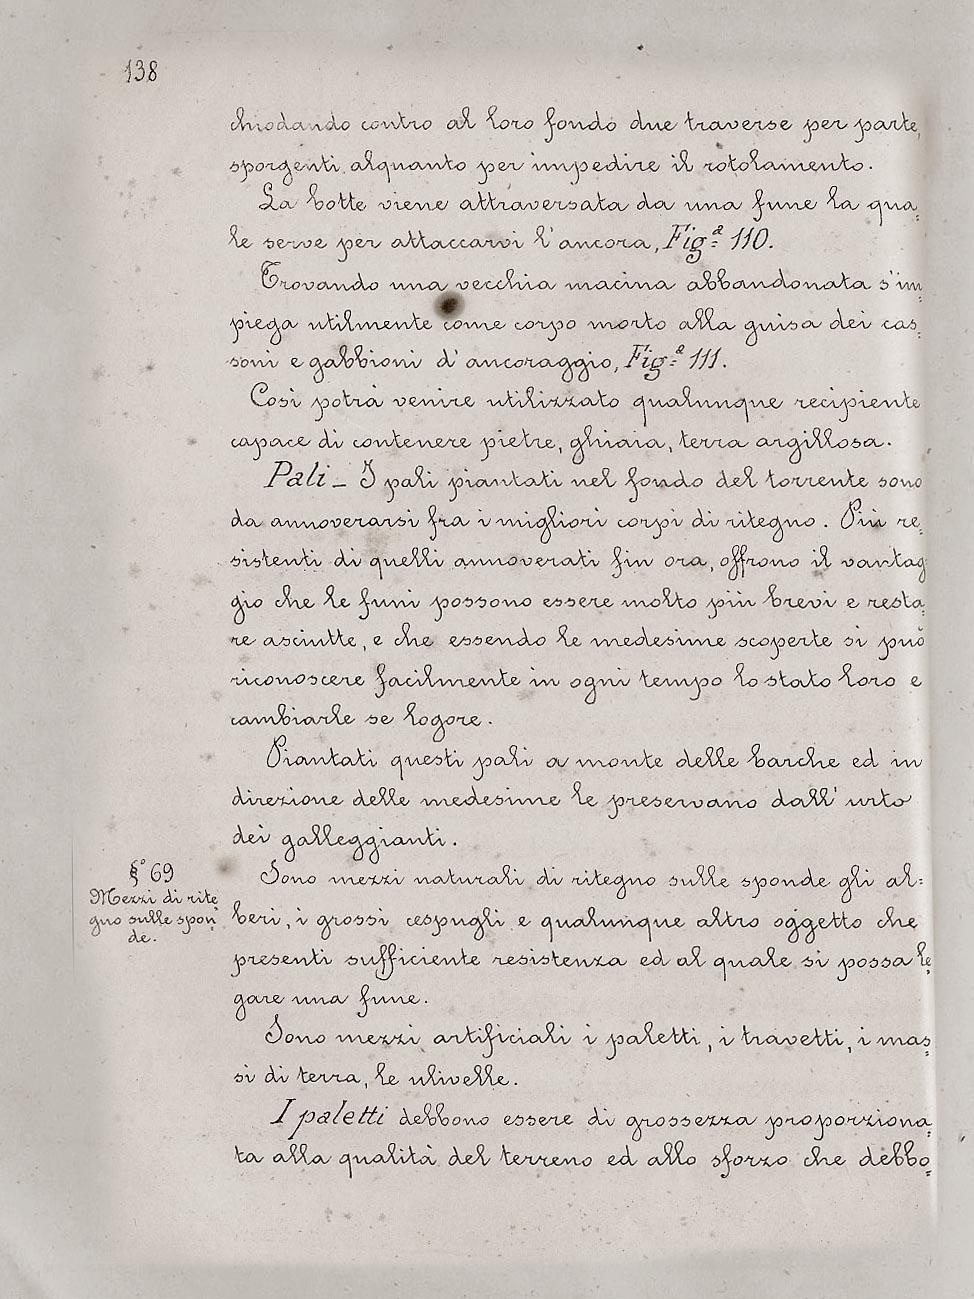 138
chiodando contro al loro fondo due traverse per parte,
sporgenti alquanto per impedire il rotolamento.
La botte viene attraversata da una fune la qua=
le serve per attaccarvi l'ancora, Fig.ª 110.
Trovando una vecchia macina abbandonata s'im=
piega utilmente come corpo morto alla guisa dei cas=
soni e gabbioni d'ancoraggio, Fig.ª 111.
Così potrà venire utilizzato qualunque recipiente
capace di contenere pietre, ghiaia, terra argillosa.
Pali _ I pali piantati nel fondo del torrente sono
da annoverarsi fra i migliori corpi di ritegno. Più re=
sistenti di quelli annoverati fin ora, offrono il vantag=
gio che le funi possono essere molto più brevi e resta=
re asciutte, e che essendo le medesime scoperte si può
riconoscere facilmente in ogni tempo lo stato loro e
cambiarle se logore.
Piantati questi pali a monte delle barche ed in
direzione delle medesime le preservano dall'urto
dei galleggianti.
§° 69
Mezzi di rite=
gno sulle spon=
de.
Sono mezzi naturali di ritegno sulle sponde gli al=
beri, i grossi cespugli e qualunque altro oggetto che
presenti sufficiente resistenza ed al quale si possa le=
gare una fune.
Sono mezzi artificiali i paletti, i travetti, i mas=
si di terra, le ulivelle.
I paletti debbono essere di grossezza proporziona=
ta alla qualità del terreno ed allo sforzo che debbo=